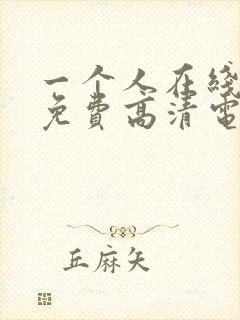 一个人在线
免费高清电
丘麻矢